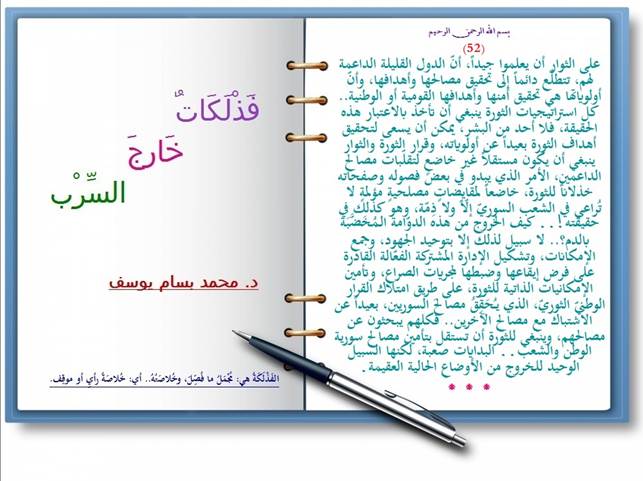 بسم الله الرحمن الرحيم
(52)
على الثوار أن يعلموا جيداً، أنّ الدول القليلة الداعمة
لهم، تتطلّع دائماً إلى تحقيق مصالحها وأهدافها، وأنّ
أولوياتها هي تحقيق أمنها وأهدافها القومية أو الوطنية..
كل استراتيجيات الثورة ينبغي أن تأخذ بالاعتبار هذه
الحقيقة، فلا أحد من البشر، يمكن أن يسعى لتحقيق
أهداف الثورة بعيداً عن أولوياته، وقرار الثورة والثوار
ينبغي أن يكون مستقلاً غير خاضع لتقلبات مصالح
الداعمين، الأمر الذي يبدو في بعض فصوله وصفحاته
خذلاناً للثورة، خاضعاً لمقايضاتٍ مصلحيةٍ مؤلمةٍ لا
تُراعي في الشعب السوريّ إلّاً ولا ذِمّة، وهو كذلك في
حقيقته!.. كيف الخروج من هذه الدوّامة الـمُخَضَّبة
بالدم؟.. لا سبيل لذلك إلا بتوحيد الجهود، وجمع
الإمكانات، وتشكيل الإدارة المشتركة الفعّالة القادرة
على فرض إيقاعها وضبطها لمجريات الصراع، وتأمين
الإمكانيات الذاتية للثورة، على طريق امتلاك القرار
الوطنيّ الثوريّ، الذي يُحَقِّقُ مصالح السوريين، بعيداً عن
الاشتباك مع مصالح الآخرين.. فكلهم يبحثون عن
مصالحهم، وينبغي للثورة أن تستقل بتأمين مصالح سورية
الوطن والشعب.. البدايات صعبة، لكنها السبيل
الوحيد للخروج من الأوضاع الحالية العقيمة.
* * *
فَذْلَكَاتٌ
خَارِجَ
السِّرْب
د. محمد بسام يوسف
الفَذْلَكَةُ هي: مُجْمَلُ ما فُصِّلَ، وخُلاصَتُهُ.. أي: خُلاصَةُ رأيٍ أو موقف.